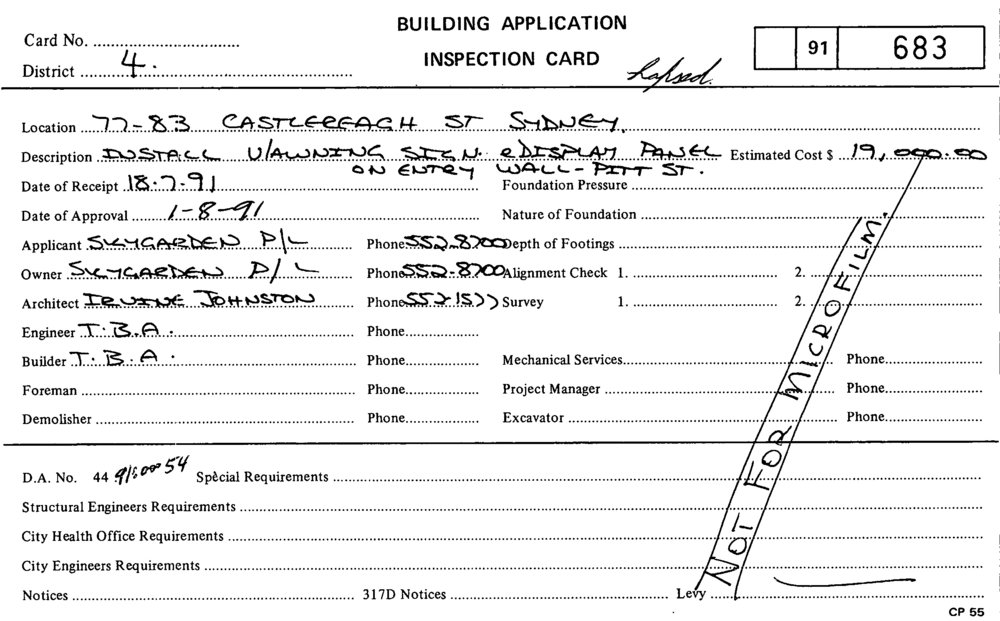 BUILDING APPLICATION
INSPECTION CARD
Card No.
District 4.
Lapsed.
91 683
Location 77-83 CASTLEREAGH ST SYDNEY.
Description INSTALL U/AWNING SIGN. & DISPLAY PANEL Estimated Cost $ 19,000.00
ON ENTRY WALL - PITT ST.
Date of Receipt 18.7.91 Foundation Pressure
Date of Approval 1-8-91 Nature of Foundation
Applicant SKYGARDEN P/L Phone 552.8700 Depth of Footings
Owner SKYGARDEN P/L Phone 552-8700 Alignment Check 1. 2.
Architect IRVINE JOHNSTON Phone 552 1577 Survey 1. 2.
Engineer T.B.A. Phone
Builder T.B.A. Phone Mechanical Services Phone
Foreman Phone Project Manager Phone
Demolisher Phone Excavator Phone
NOT FOR MICROFILM.
D.A. No. 44 Special Requirements
Structural Engineers Requirements
City Health Office Requirements
City Engineers Requirements
Notices 317D Notices Levy
CP 55